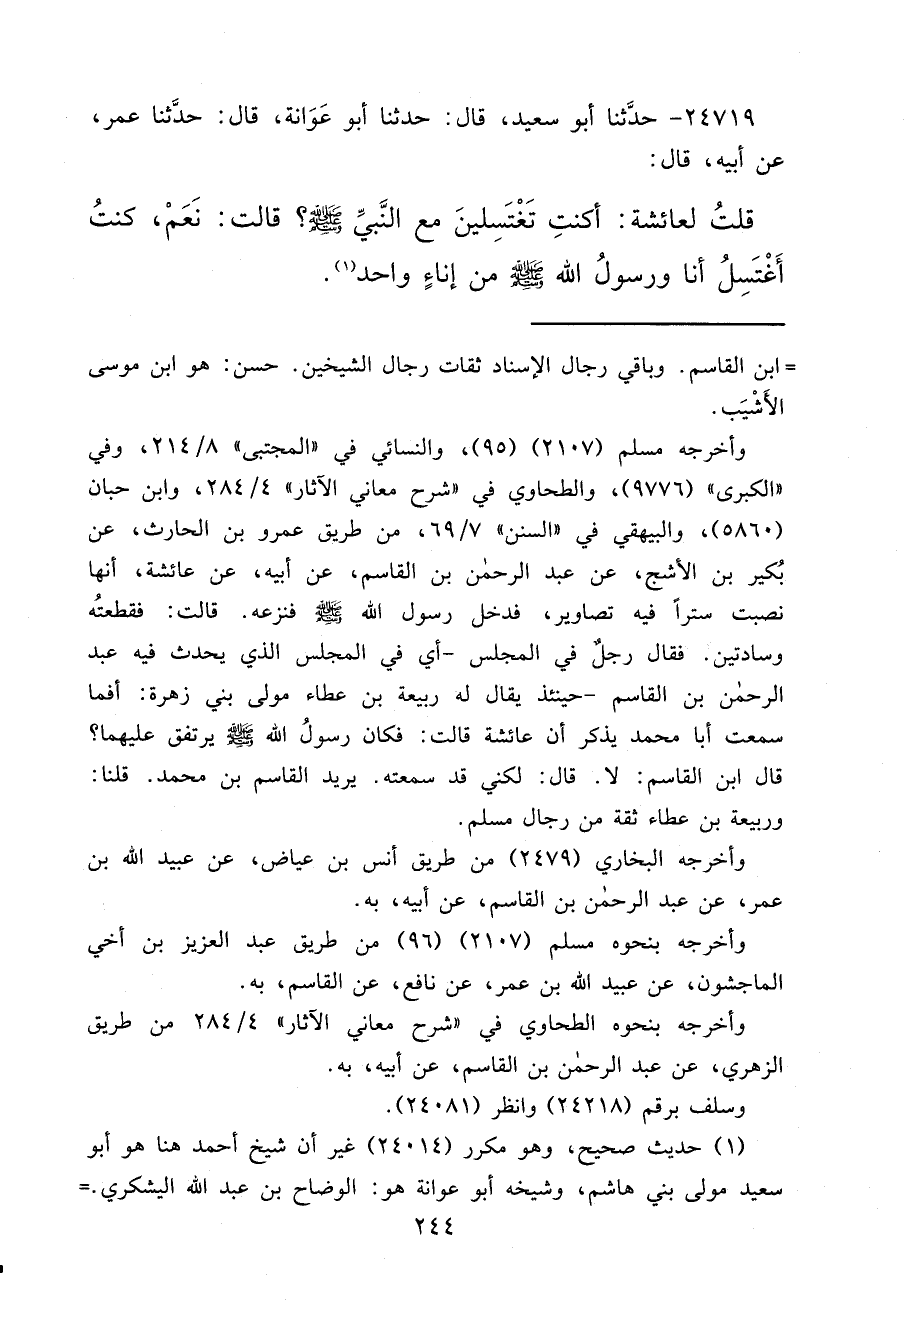 ٢٤٧١٩- حدَّثنا أبو سعيد، قال: حدثنا أبو عَوَانة، قال: حدَّثنا عمر،
عن أبيه، قال:
قلتُ لعائشة: أكنتِ تَغْتَسِلينَ مع النَّبيِّ ﷺ؟ قالت: نَعَمْ، كنتُ
أَغْتَسِلُ أنا ورسولُ الله ﷺ من إناءٍ واحد(١).
= ابن القاسم. وباقي رجال الإسناد ثقات رجال الشيخين. حسن: هو ابن موسى
الأَشْيَب.
وأخرجه مسلم (٢١٠٧) (٩٥)، والنسائي في «المجتبى» ٢١٤/٨، وفي
«الكبرى» (٩٧٧٦)، والطحاوي في «شرح معاني الآثار» ٢٨٤/٤، وابن حبان
(٥٨٦٠)، والبيهقي في «السنن» ٦٩/٧، من طريق عمرو بن الحارث، عن
بُكير بن الأشج، عن عبد الرحمٰن بن القاسم، عن أبيه، عن عائشة، أنها
نصبت ستراً فيه تصاوير، فدخل رسول الله ﷺ فنزعه. قالت: فقطعتُه
وسادتين. فقال رجلٌ في المجلس -أي في المجلس الذي يحدث فيه عبد
الرحمٰن بن القاسم -حينئذ يقال له ربيعة بن عطاء مولى بني زهرة: أفما
سمعت أبا محمد يذكر أن عائشة قالت: فكان رسولُ الله ﷺ يرتفق عليهما؟
قال ابن القاسم: لا. قال: لكني قد سمعته. يريد القاسم بن محمد. قلنا:
وربيعة بن عطاء ثقة من رجال مسلم.
وأخرجه البخاري (٢٤٧٩) من طريق أنس بن عياض، عن عبيد الله بن
عمر، عن عبد الرحمٰن بن القاسم، عن أبيه، به.
وأخرجه بنحوه مسلم (٢١٠٧) (٩٦) من طريق عبد العزيز بن أخي
الماجشون، عن عبيد الله بن عمر، عن نافع، عن القاسم، به.
وأخرجه بنحوه الطحاوي في «شرح معاني الآثار» ٢٨٤/٤ من طريق
الزهري، عن عبد الرحمٰن بن القاسم، عن أبيه، به.
وسلف برقم (٢٤٢١٨) وانظر (٢٤٠٨١).
(١) حديث صحيح، وهو مكرر (٢٤٠١٤) غير أن شيخ أحمد هنا هو أبو
سعيد مولى بني هاشم، وشيخه أبو عوانة هو: الوضاح بن عبد الله اليشكري.=
٢٤٤